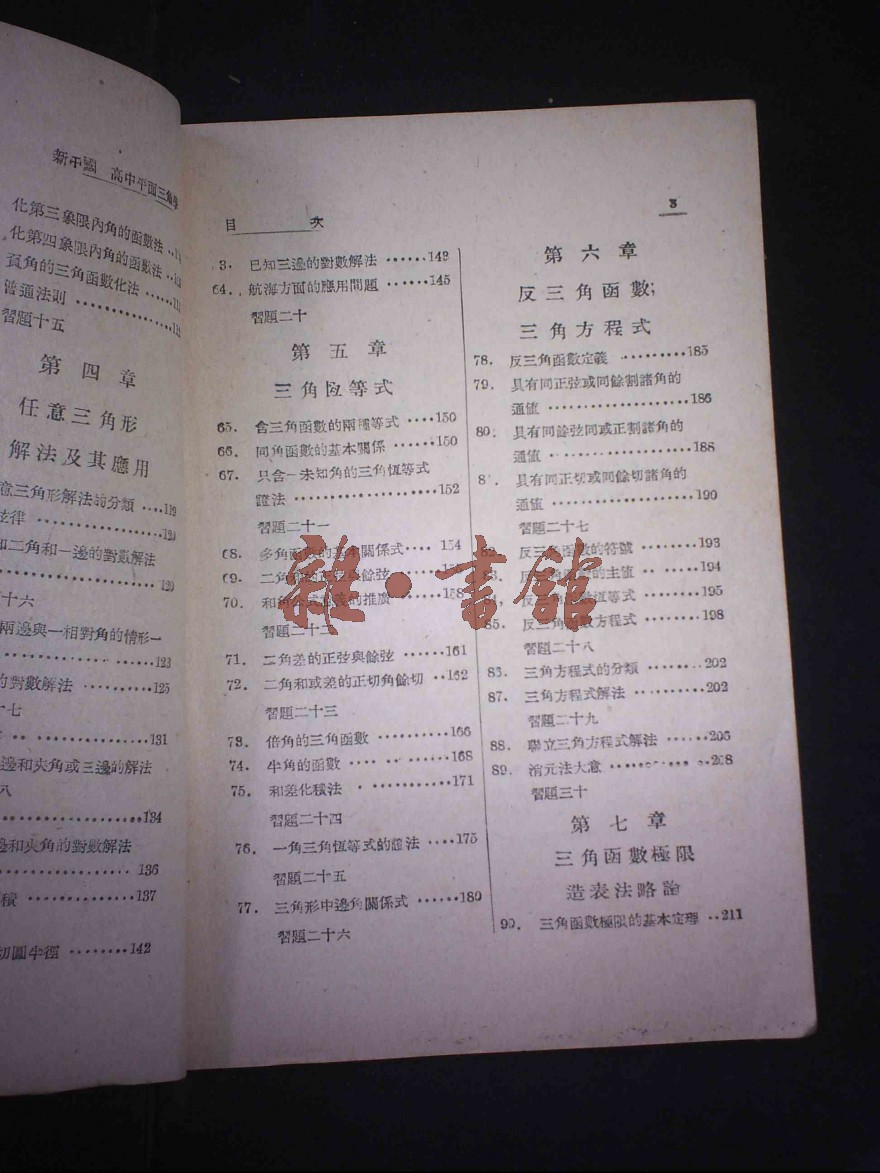 新中國 高中平面三角學
化第三象限內角的函數法
化第四象限內角的函數法
負角的三角函數化法
普通法則
習題十五
第四章
任意三角形
解法及其應用
意三角形解法的分類 ····119
弦律 ·················120
和二角和一邊的對數解法
·················120
十六
兩邊與一相對角的情形一
·················123
的對數解法 ··········125
十七
·················131
邊和夾角或三邊的解法
八
·················134
邊和夾角的對數解法
·················136
積 ·············137
切圓半徑 ·········142
目 次
3
3. 已知三邊的對數解法 ······143
64. 航海方面的應用問題 ······145
習題二十
第五章
三角恆等式
65. 含三角函數的兩種等式 ····150
66. 同角函數的基本關係 ·····150
67. 只含一未知角的三角恆等式
證法 ·················152
習題二十一
68. 多角函數的基本關係式···· 154
69. 二角和的正弦與餘弦
70. 和角公式意義的推廣 ······158
習題二十二
71. 二角差的正弦與餘弦 ······161
72. 二角和或差的正切角餘切 ··162
習題二十三
73. 倍角的三角函數 ··········166
74. 半角的函數 ·············168
75. 和差化積法 ·············171
習題二十四
76. 一角三角恆等式的證法 ····175
習題二十五
77. 三角形中邊角關係式 ······180
習題二十六
第六章
反三角函數;
三角方程式
78. 反三角函數定義 ··········185
79. 具有同正弦或同餘割諸角的
通值 ····················186
80. 具有同餘弦同或正割諸角的
通值 ····················188
8 . 具有同正切或同餘切諸角的
通值 ····················190
習題二十七
82. 反三角函數的符號 ········193
83. 反三角函數的主值 ·· ····· 194
反三角函數恆等式 ·······195
85. 反三角函數方程式 ·······198
習題二十八
86. 三角方程式的分類 ·······202
87. 三角方程式解法 ·········202
習題二十九
88. 聯立三角方程式解法 ······205
89. 消元法大意 ·············208
習題三十
第七章
三角函數極限
造表法略論
90. 三角函數極限的基本定理 ··211
雜·書館